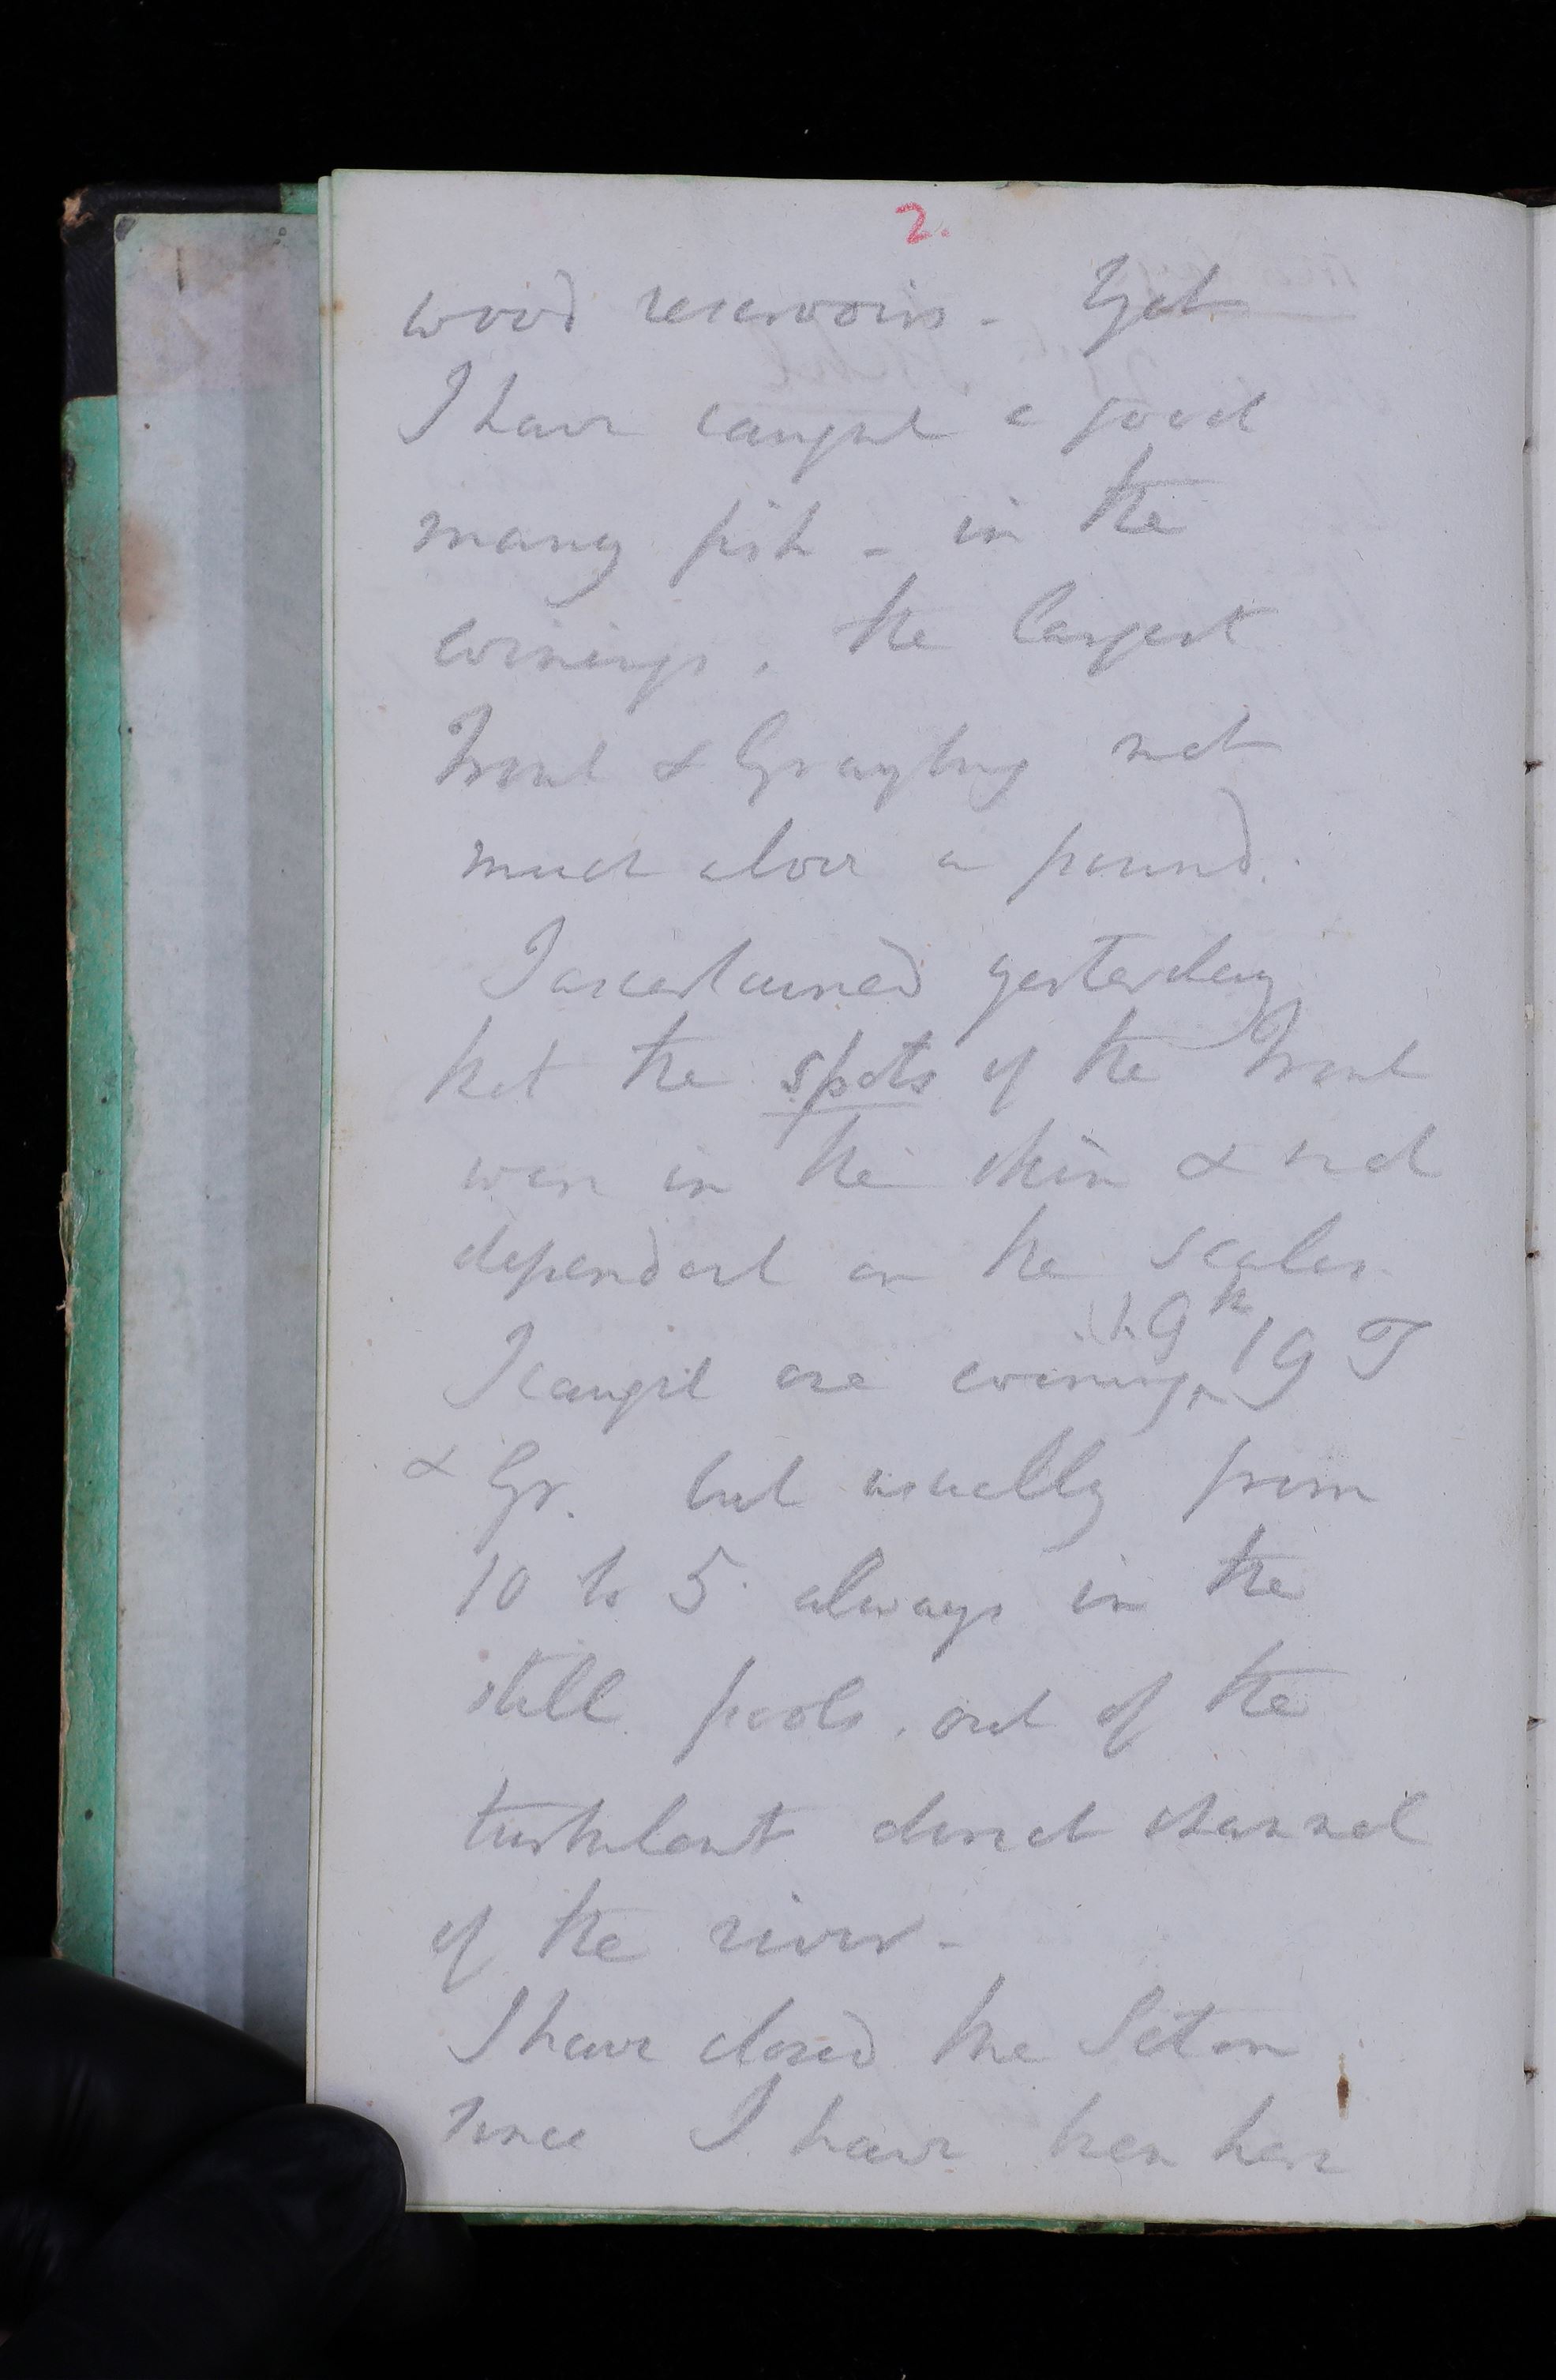 2.
wood reservoirs - Yet
I have caught a good
many fish - in the
evenings, the largest
Trout & Grayling not
much above a pound.
I ascertained yesterday
that the spots of the Trout
were in the skin & not
dependent on the scales.
9th
I caught one evening 19 T
& Gr. but usually from
10 to 5. always in the
still pools, out of the
turbulent direct channel
of the river -
I have closed the Seton
since I have been here